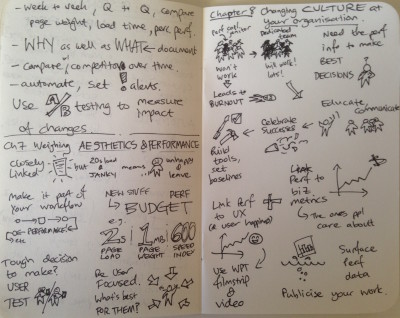 - week + week, Q + Q, compare
page weight, load time, perc. perf.
- WHY as well as WHAT ← document
- compare competitors over time.
- automate, set ! alerts.
Use A/B testing to measure
impact
of changes.
Ch7 Weighing AESTHETICS & PERFORMANCE
Closely
Linked
but
bad
& JANKY
means
unhappy
& leave
make it part of
your workflow
PERFORMANCE
NEW STUFF
PERF
BUDGET
e.g.
2s
PAGE
LOAD
1MB
PAGE
WEIGHT
600
SPEED
INDEX
Tough decision
to make?
USER
TEST
Be User
Focused.
What's best
FOR THEM?
Chapter 8 Changing CULTURE at
your organisation.
Perf cop/
janitor
won't
work
Leads to
BURNOUT
Dedicated
team
will work
lots!
Need the perf
info to make
BEST
DECISIONS
Educate
Communicate
Celebrate
Successes
Build
tools,
set
baselines
Link Perf
to UX
(ie user happiness)
Link
Perf to
biz
metrics
The ones ppl
care about
Use WPT
filmstrip
video
Surface
Perf
data
Publicise your work.